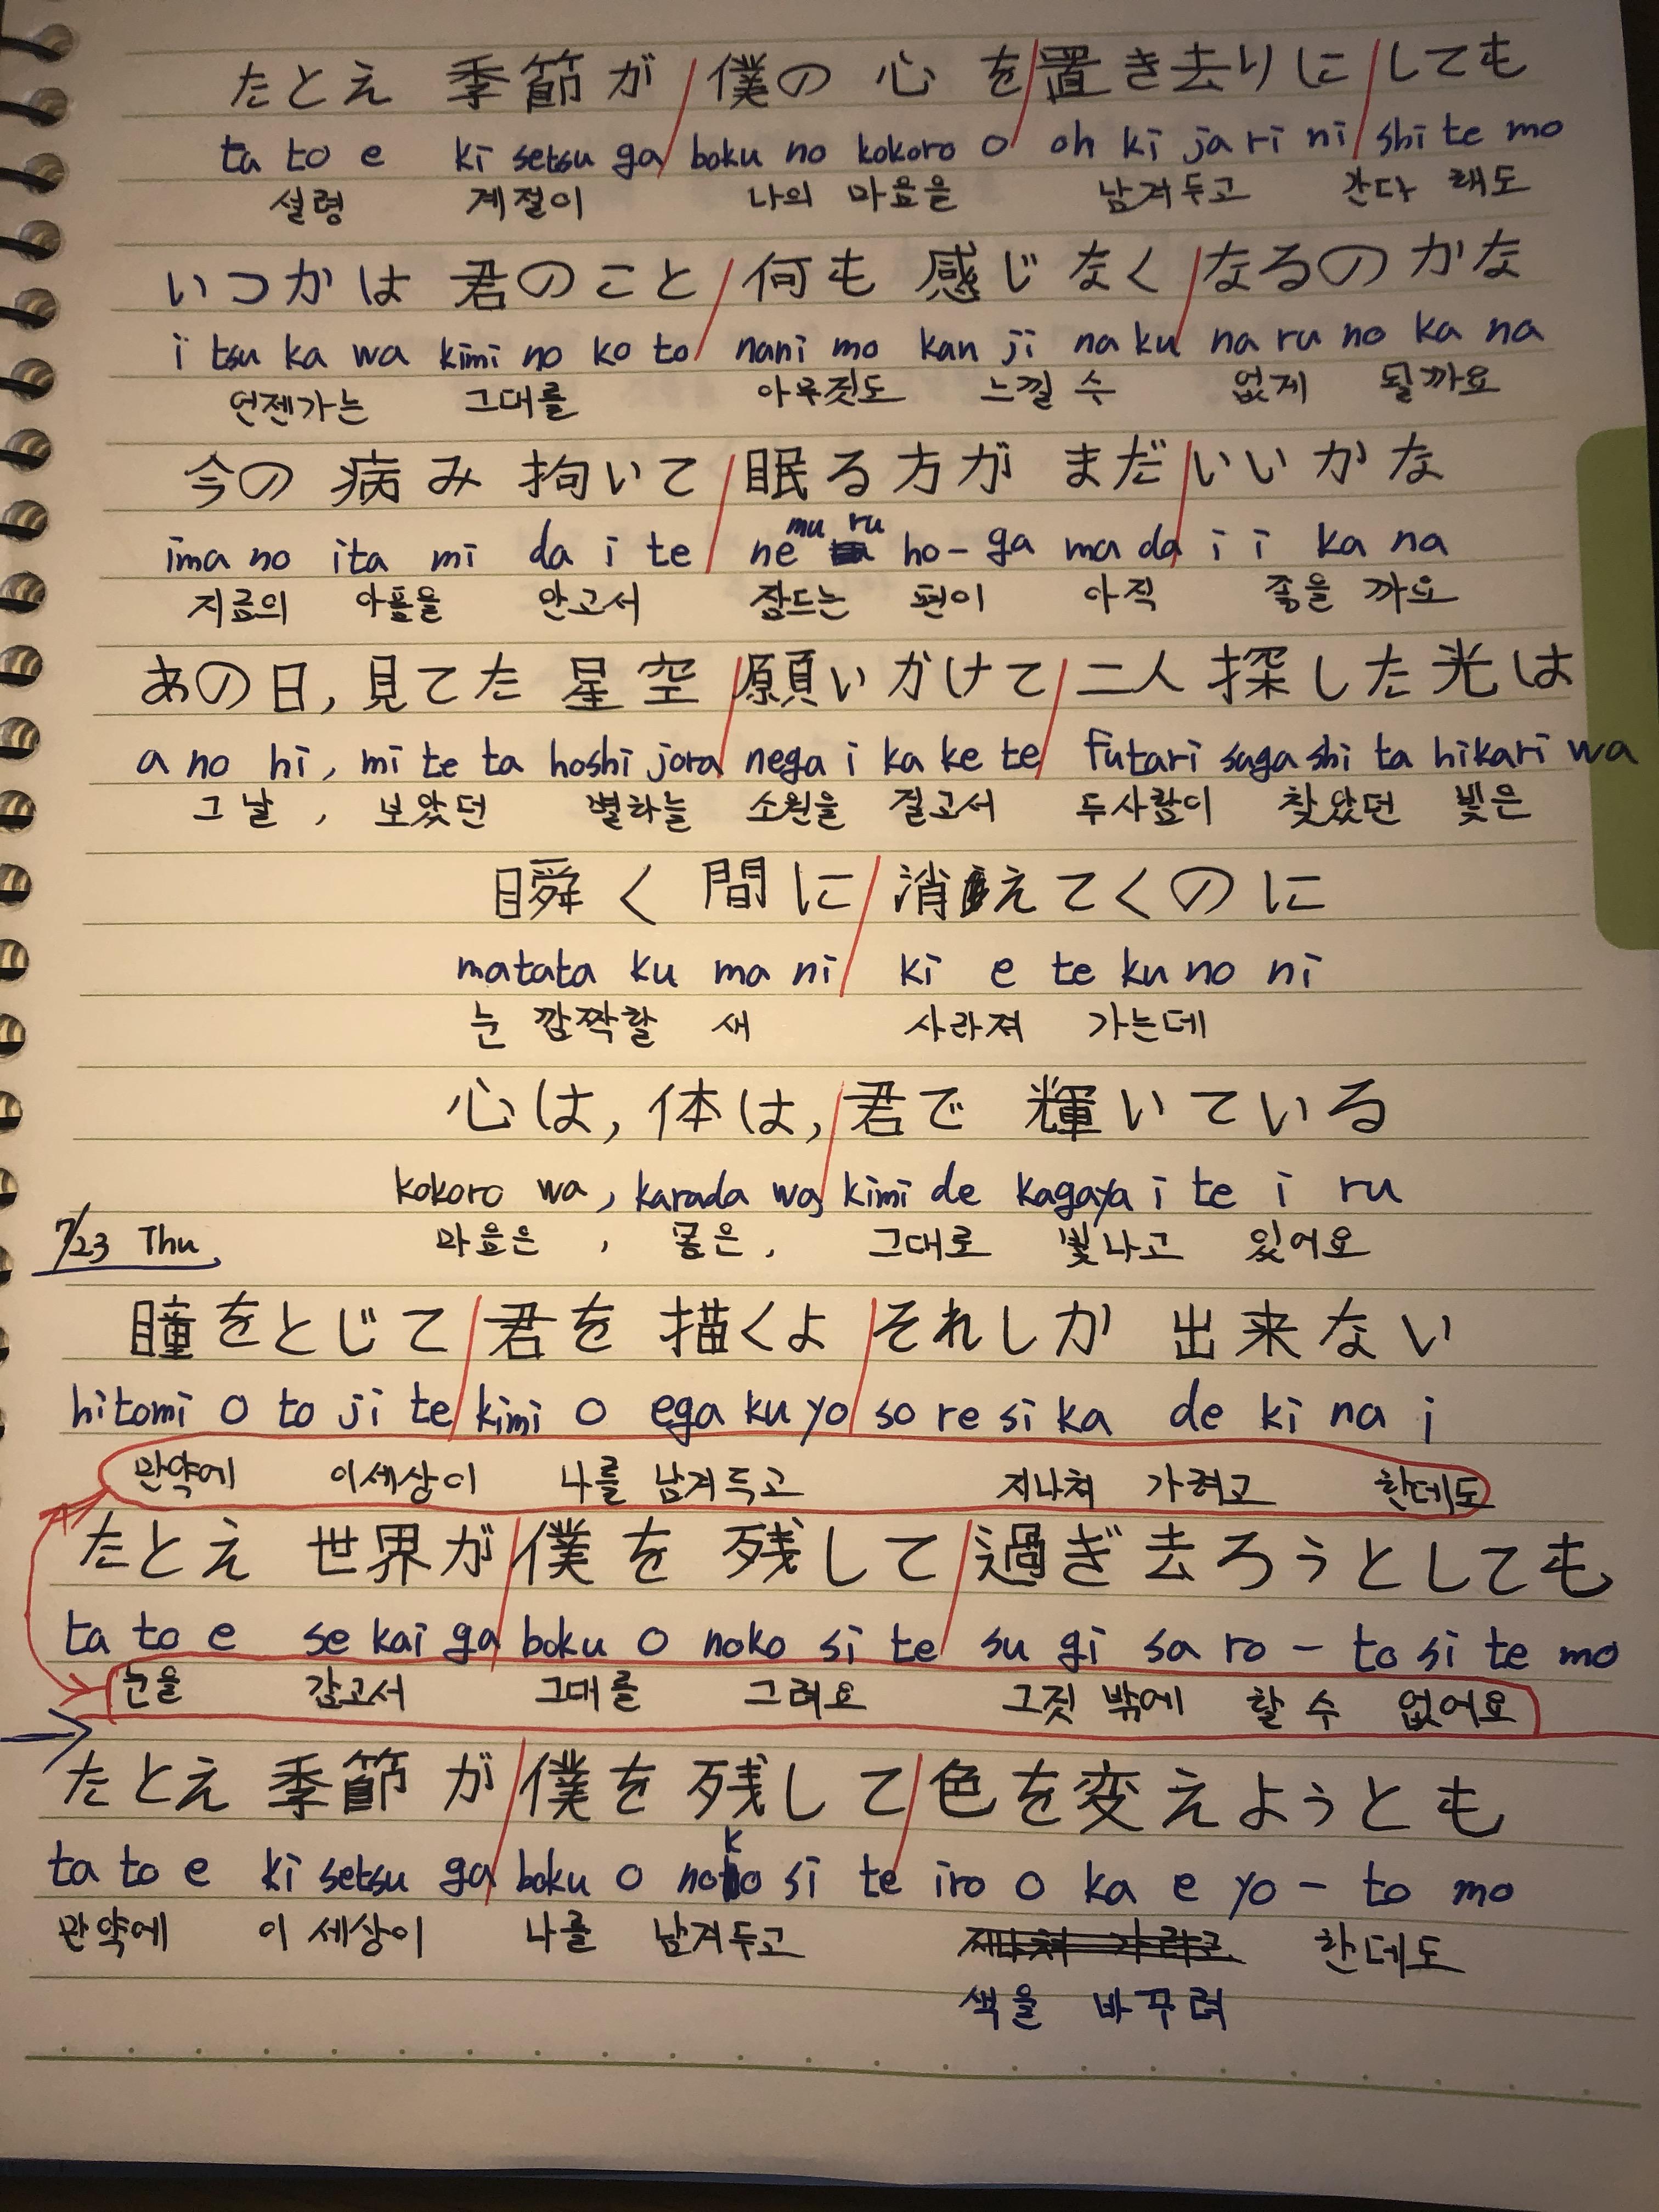 たとえ 季節が / 僕の 心 を / 置き去りに / しても
ta to e ki setsu ga / boku no kokoro o / oh ki ja ri ni / shi te mo
설령 계절이 나의 마음을 남겨두고 간다 해도
いつかは 君のこと / 何も 感じ なく / なるの かな
i tsu ka wa kimi no ko to / nani mo kan ji na ku / na ru no ka na
언젠가는 그대를 아무짓도 느낄 수 없게 될까요
今の 病み 拘いて / 眠る方が まだ / いい かな
ima no ita mi da i te / ne mu ru ho- ga ma da / i i ka na
지금의 아픔을 안고서 잠드는 편이 아직 좋을 까요
あの日, 見てた 星空 / 願い かけて / 二人 探した 光は
a no hi, mi te ta hoshi jora / nega i ka ke te / futari saga shi ta hikari wa
그날, 보았던 별하늘 소원을 걸고서 두사람이 찾았던 빛은
瞬く 間に / 消えてくのに
matata ku ma ni / ki e te ku no ni
눈 깜짝할 새 사라져 가는데
心は, 体は, / 君で 輝いている
kokoro wa, karada wa, / kimi de kagaya i te i ru
마음은, 몸은, 그대로 빛나고 있어요
7/23 Thu,
瞳をとじて / 君を 描くよ / それしか 出来ない
hitomi o to ji te / kimi o ega ku yo / so re si ka de ki na i
만약에 이세상이 나를 남겨두고 지나쳐 가려고 한데도
たとえ 世界が / 僕を 残して / 過ぎ去ろうとしても
ta to e se kai ga / boku o noko si te / su gi sa ro - to si te mo
눈을 감고서 그대를 그려요 그짓 밖에 할 수 없어요
たとえ 季節が / 僕を 残して / 色を変えようとも
ta to e ki setsu ga / boku o noko si te / iro o ka e yo - to mo
만약에 이 세상이 나를 남겨두고 지나쳐 가려고 한데도
색을 바꾸려